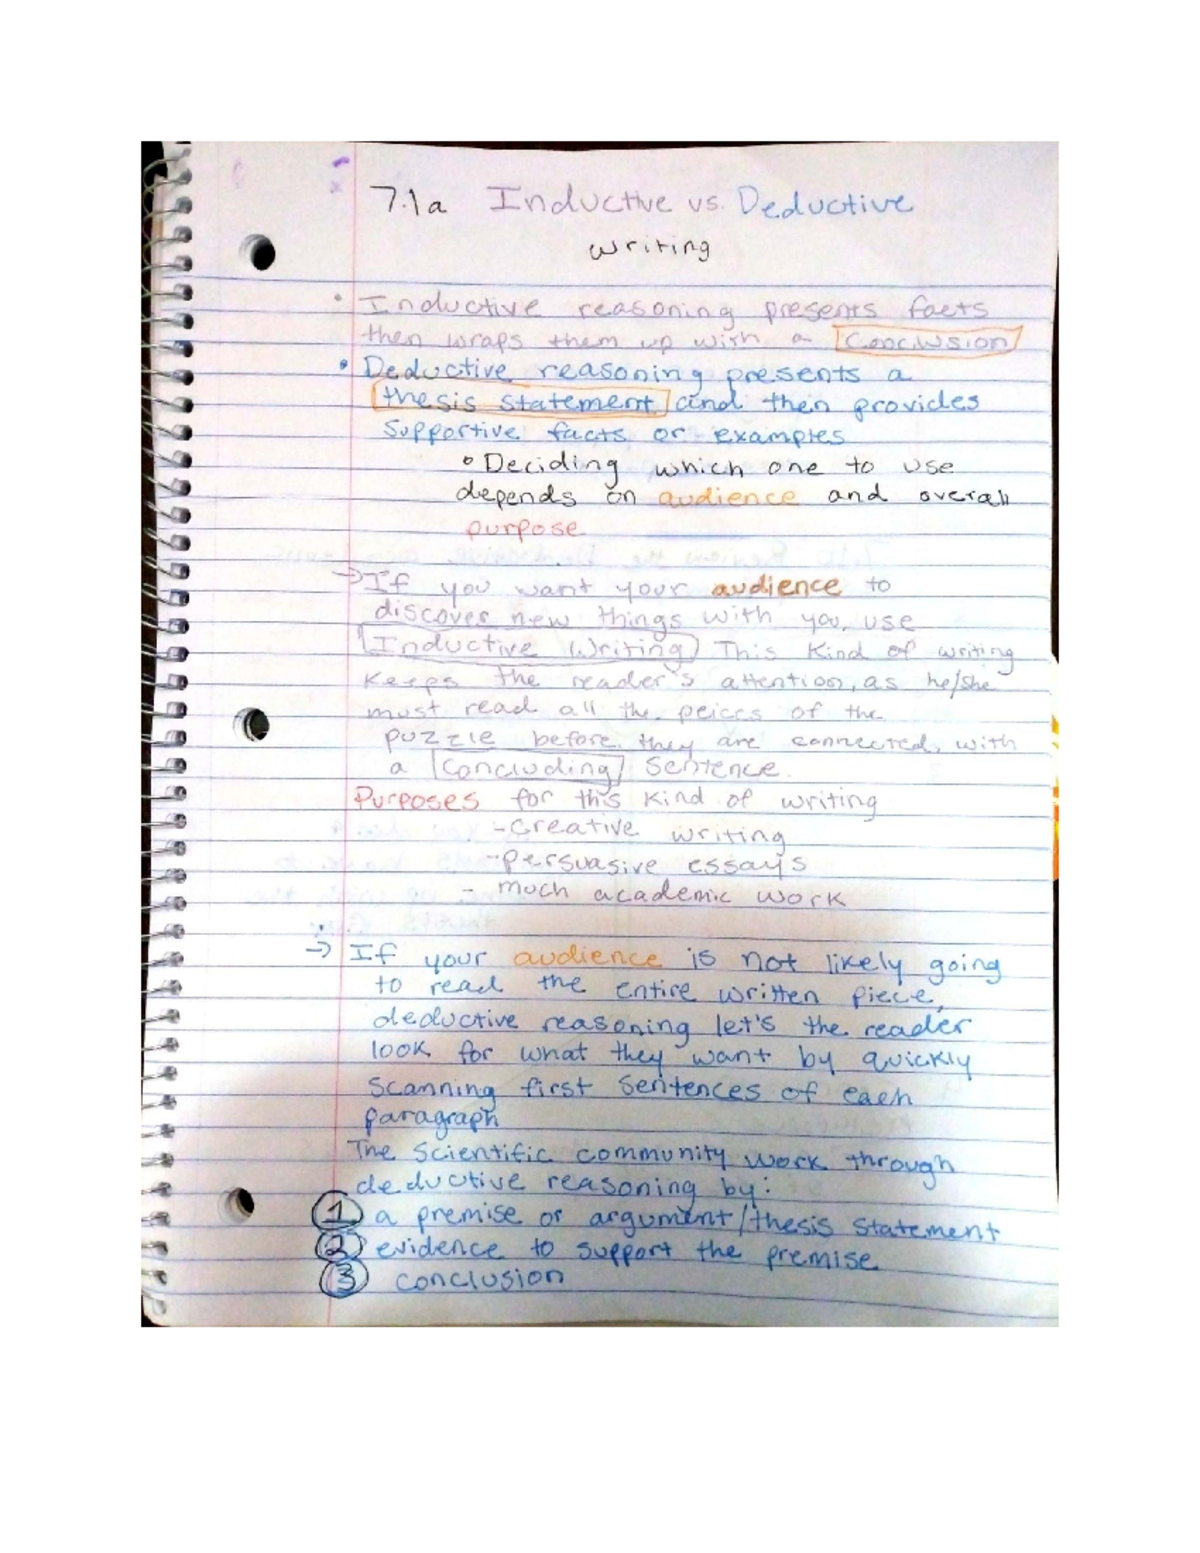 7.1a Inductive vs. Deductive
writing
• Inductive reasoning presents facts
then wraps them up with a Conclusion
• Deductive reasoning presents a
thesis statement and then provides
supportive facts or examples
• Deciding which one to use
depends on audience and overall
purpose
→ If you want your audience to
discover new things with you, use
Inductive Writing This kind of writing
keeps the reader's attention, as he/she
must read all the peices of the
puzzle before they are connected, with
a Concluding Sentence.
Purposes for this kind of writing
-creative writing
-persuasive essays
- much academic work
→ If your audience is not likely going
to read the entire written piece,
deductive reasoning let's the reader
look for what they want by quickly
scanning first sentences of each
paragraph
The Scientific community work through
deductive reasoning by:
1 a premise or argument/thesis statement
2 evidence to support the premise
3 conclusion